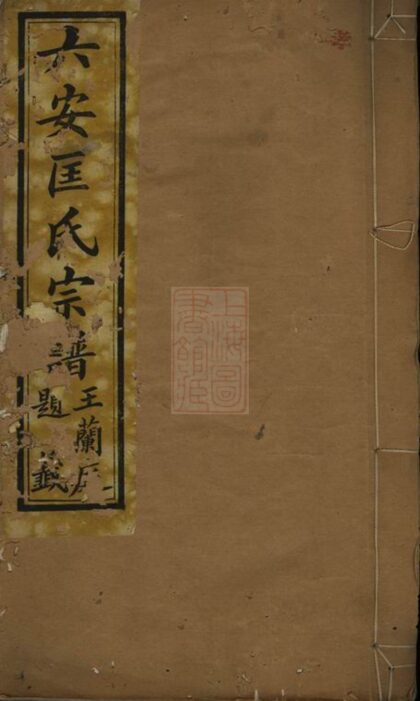 六安匡氏宗譜
王蘭
題
上海圖
書館藏